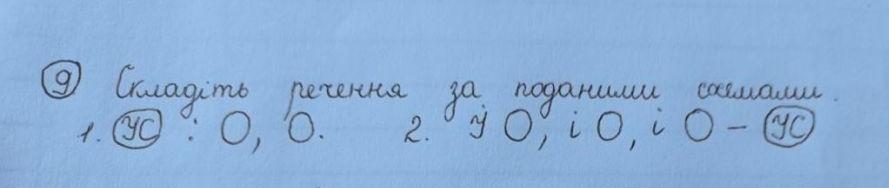 9 Складіть речення за поданими схемами.
1. УС : О, О. 2. Й О, і О, і О – УС